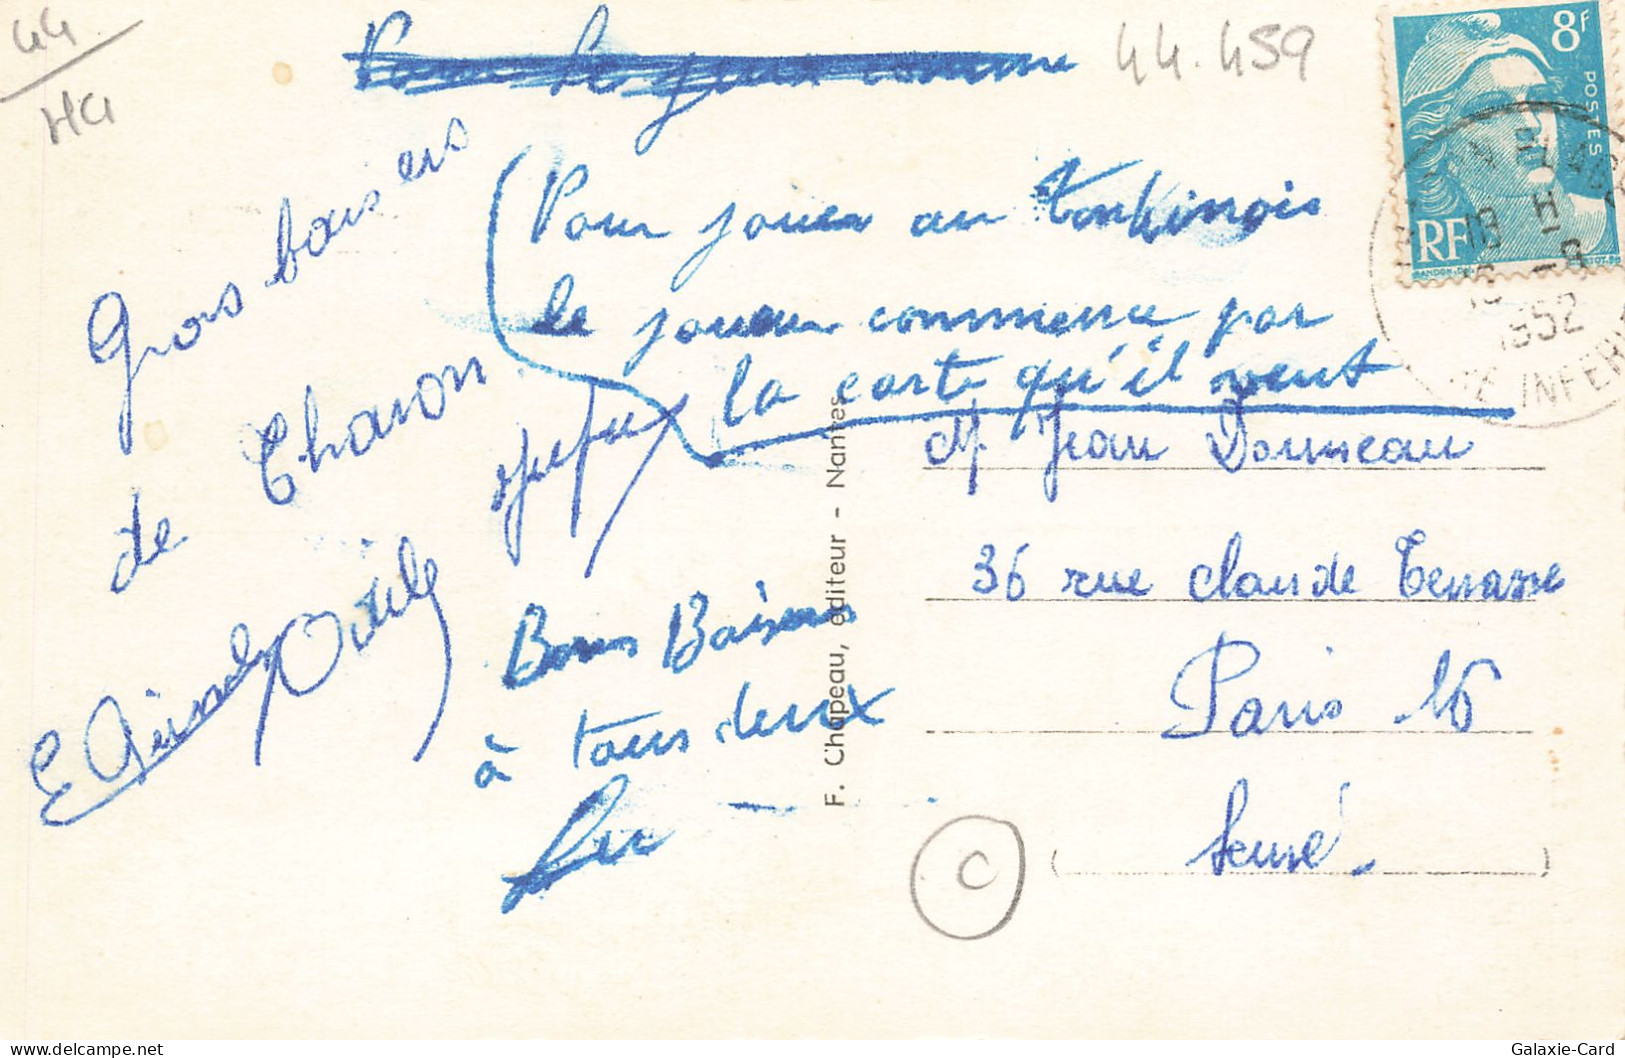 44
H4
44.459
8F
POSTES
RF
18 H
1952
INFER
Pour jouer au tonkinois
le joueur commence par
la carte qu'il veut
Gros baisers
de Charon
Odile
Bons Baisers
à tous deux
Luc
F. Chapeau, éditeur - Nantes
M Jean Donneau
36 rue claude Terrasse
Paris 16
Seine
C
Galaxie-Card
delcampe.net